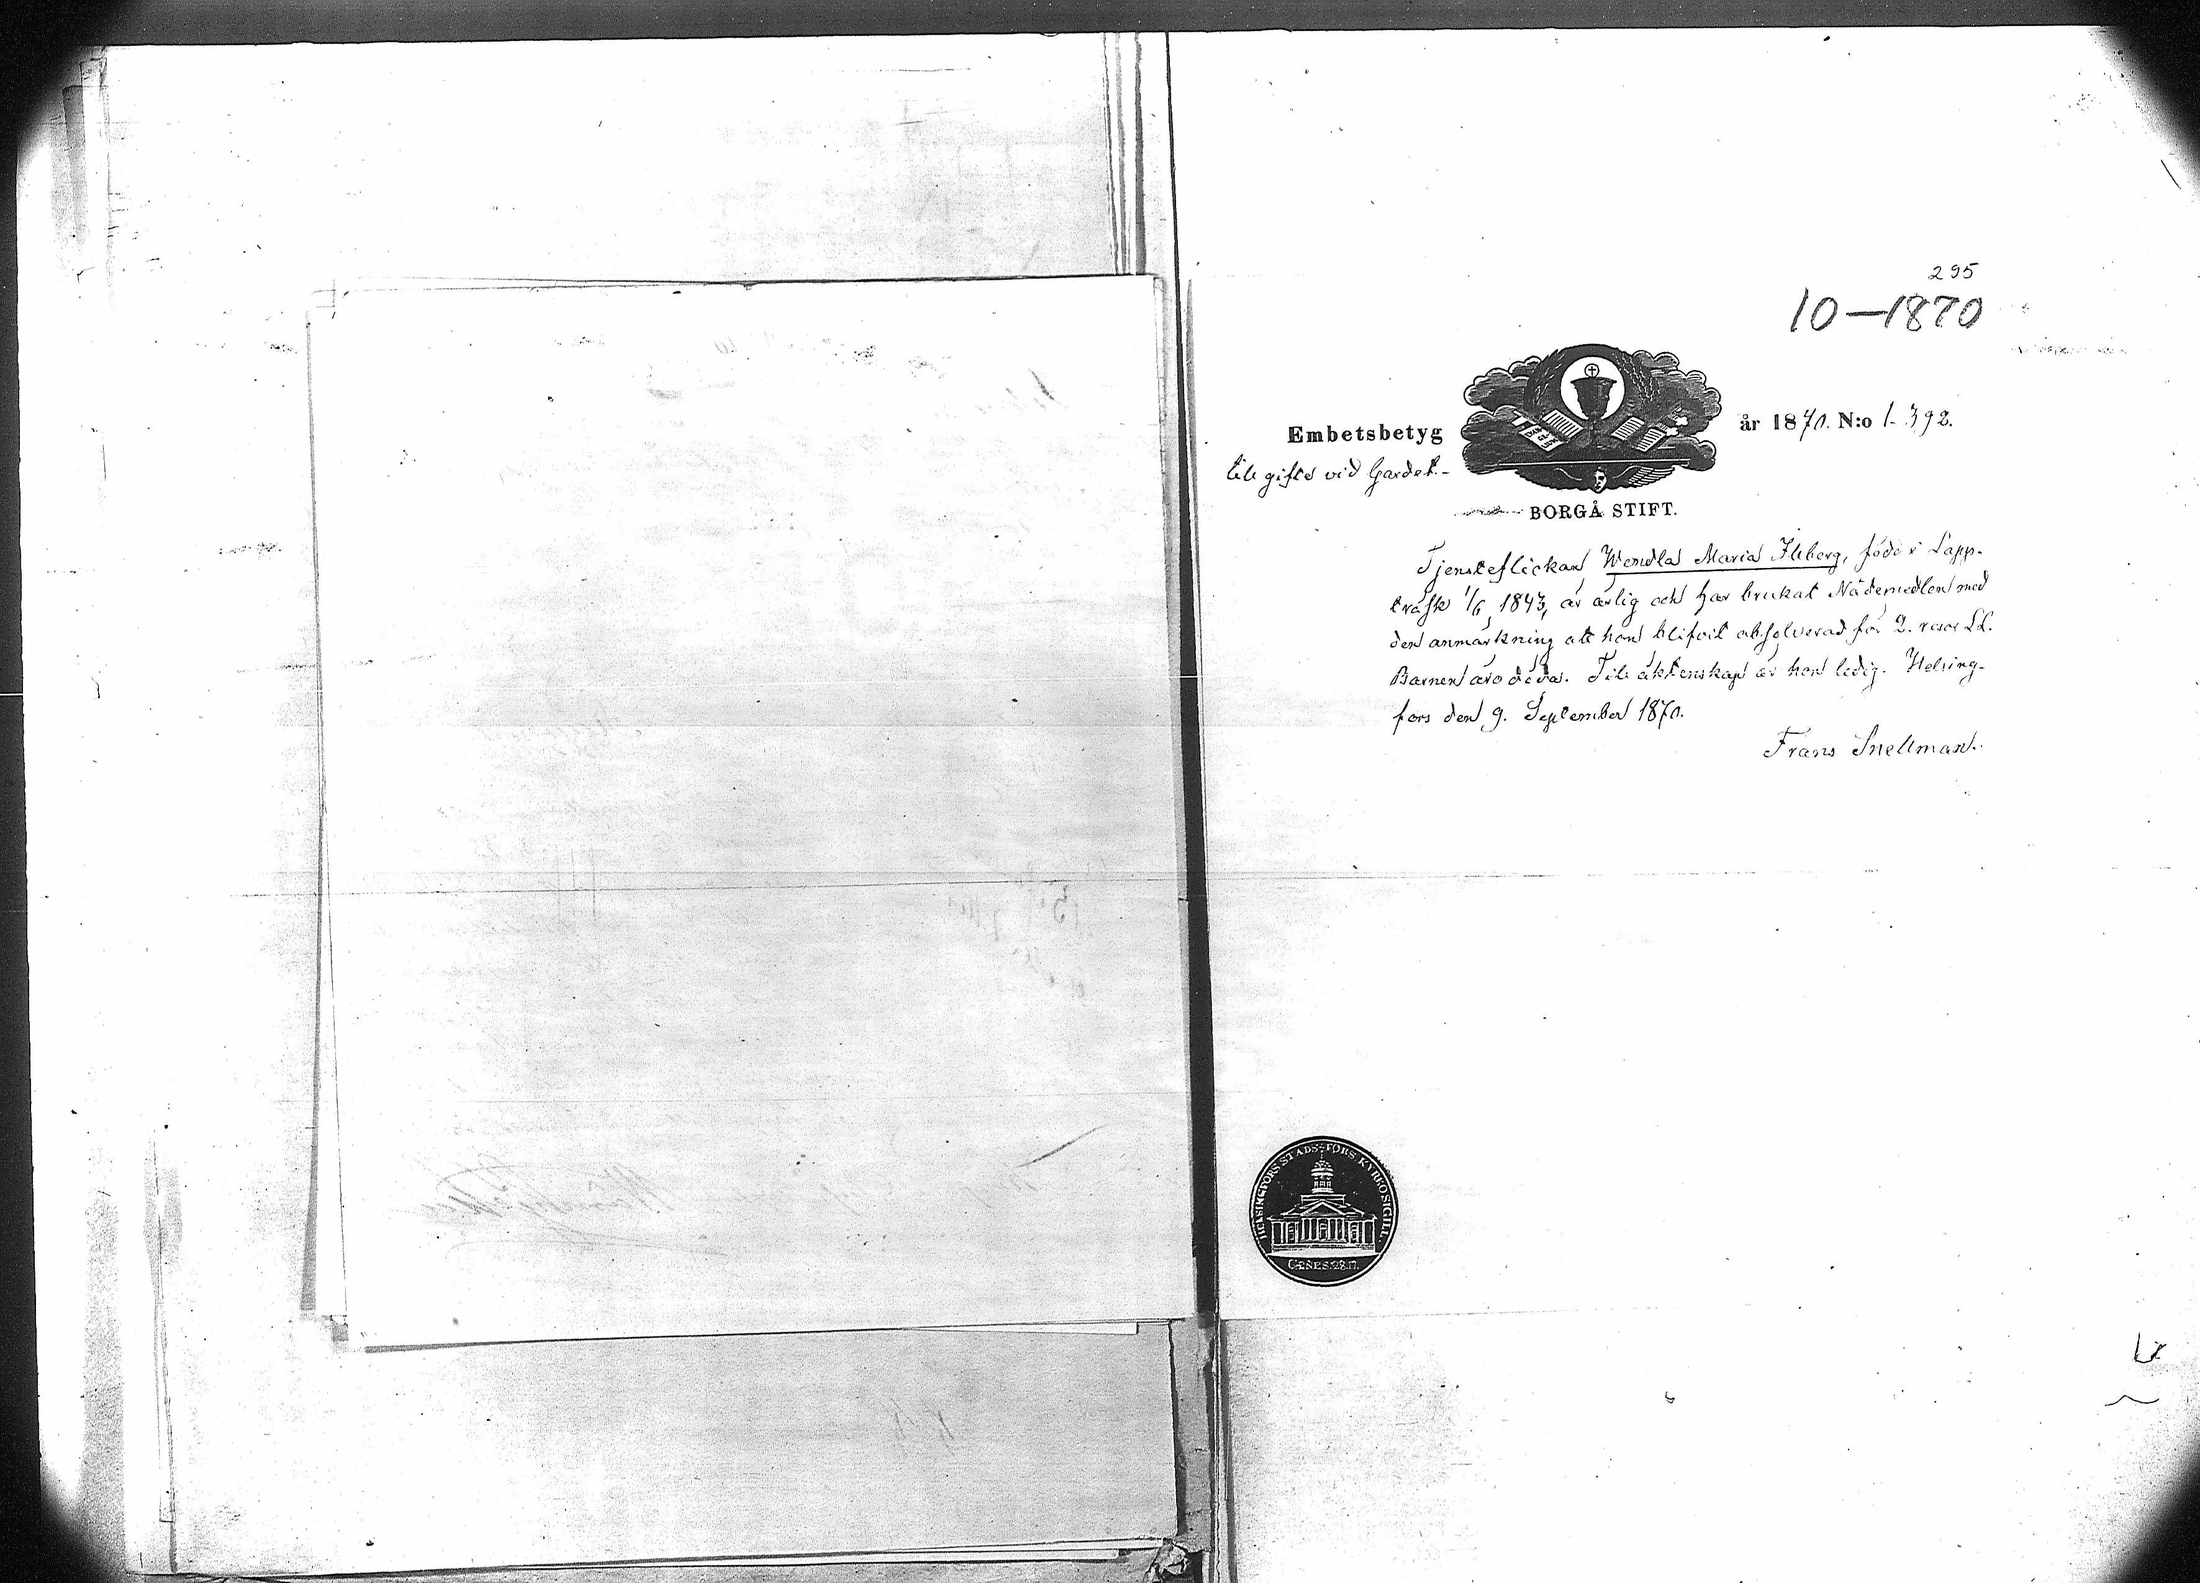 295
10—1870
Embetsbetyg år 1870. N:o 1392.
till gifte vid Gardet.-
BORGÅ STIFT.
Tjensteflickan Wendla Maria Ihlberg, född i Lapp-
träsk 1/6 1843, är ärlig och har brukat Nådemedlen med
den anmärkning att hon blifvit absolverad för 2. resor LL.
Barnen äro döda. Till äktenskap är hon ledig. Helsing-
fors den 9. September 1870.
Frans Snellman.
HELSINGFORS STADS-FÖRS. KYRKOSIGILL.
GENES. 28. 17.